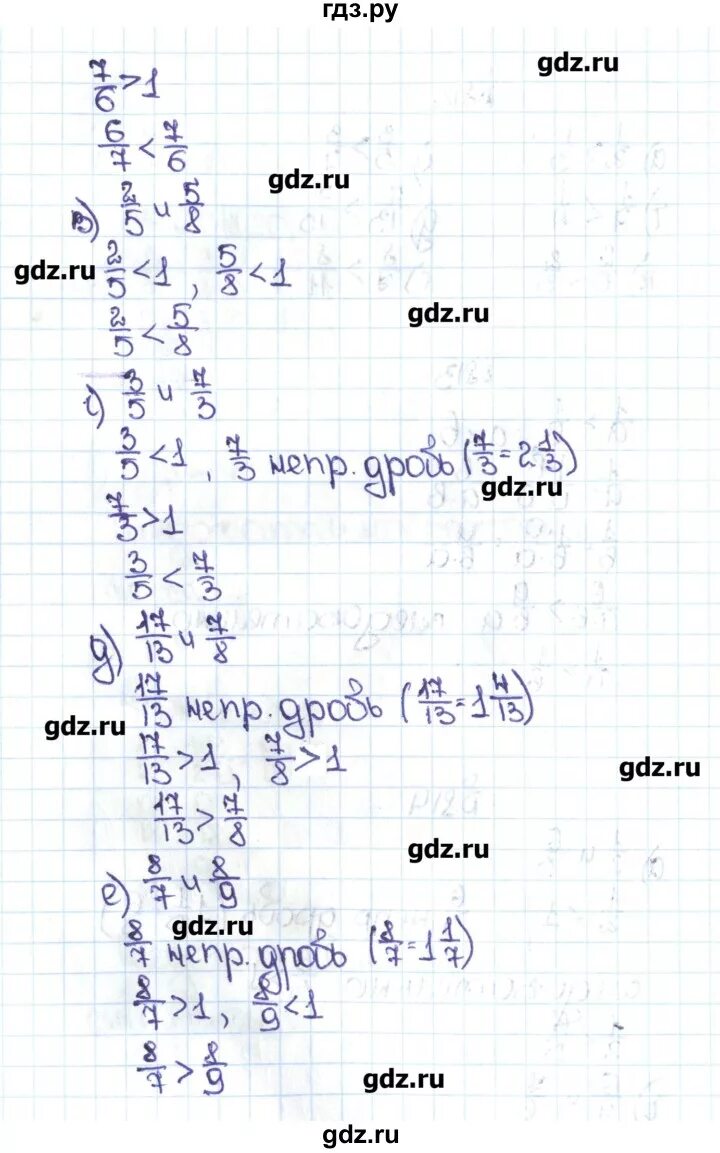 гдз.ру
gdz.ru
7/6 > 1
6/7 < 7/6
gdz.ru
в) 2/5 и 5/8
gdz.ru
2/5 < 1, 5/8 < 1
gdz.ru
2/5 < 5/8
г) 3/5 и 7/3
3/5 < 1, 7/3 непр. дробь (7/3 = 2 1/3)
gdz.ru
7/3 > 1
3/5 < 7/3
д) 17/13 и 7/8
17/13 непр. дробь (17/13 = 1 4/13)
gdz.ru
17/13 > 1, 7/8 > 1
gdz.ru
17/13 > 7/8
gdz.ru
е) 8/7 и 8/9
gdz.ru
8/7 непр. дробь (8/7 = 1 1/7)
8/7 > 1, 8/9 < 1
8/7 > 8/9
gdz.ru
gdz.ru